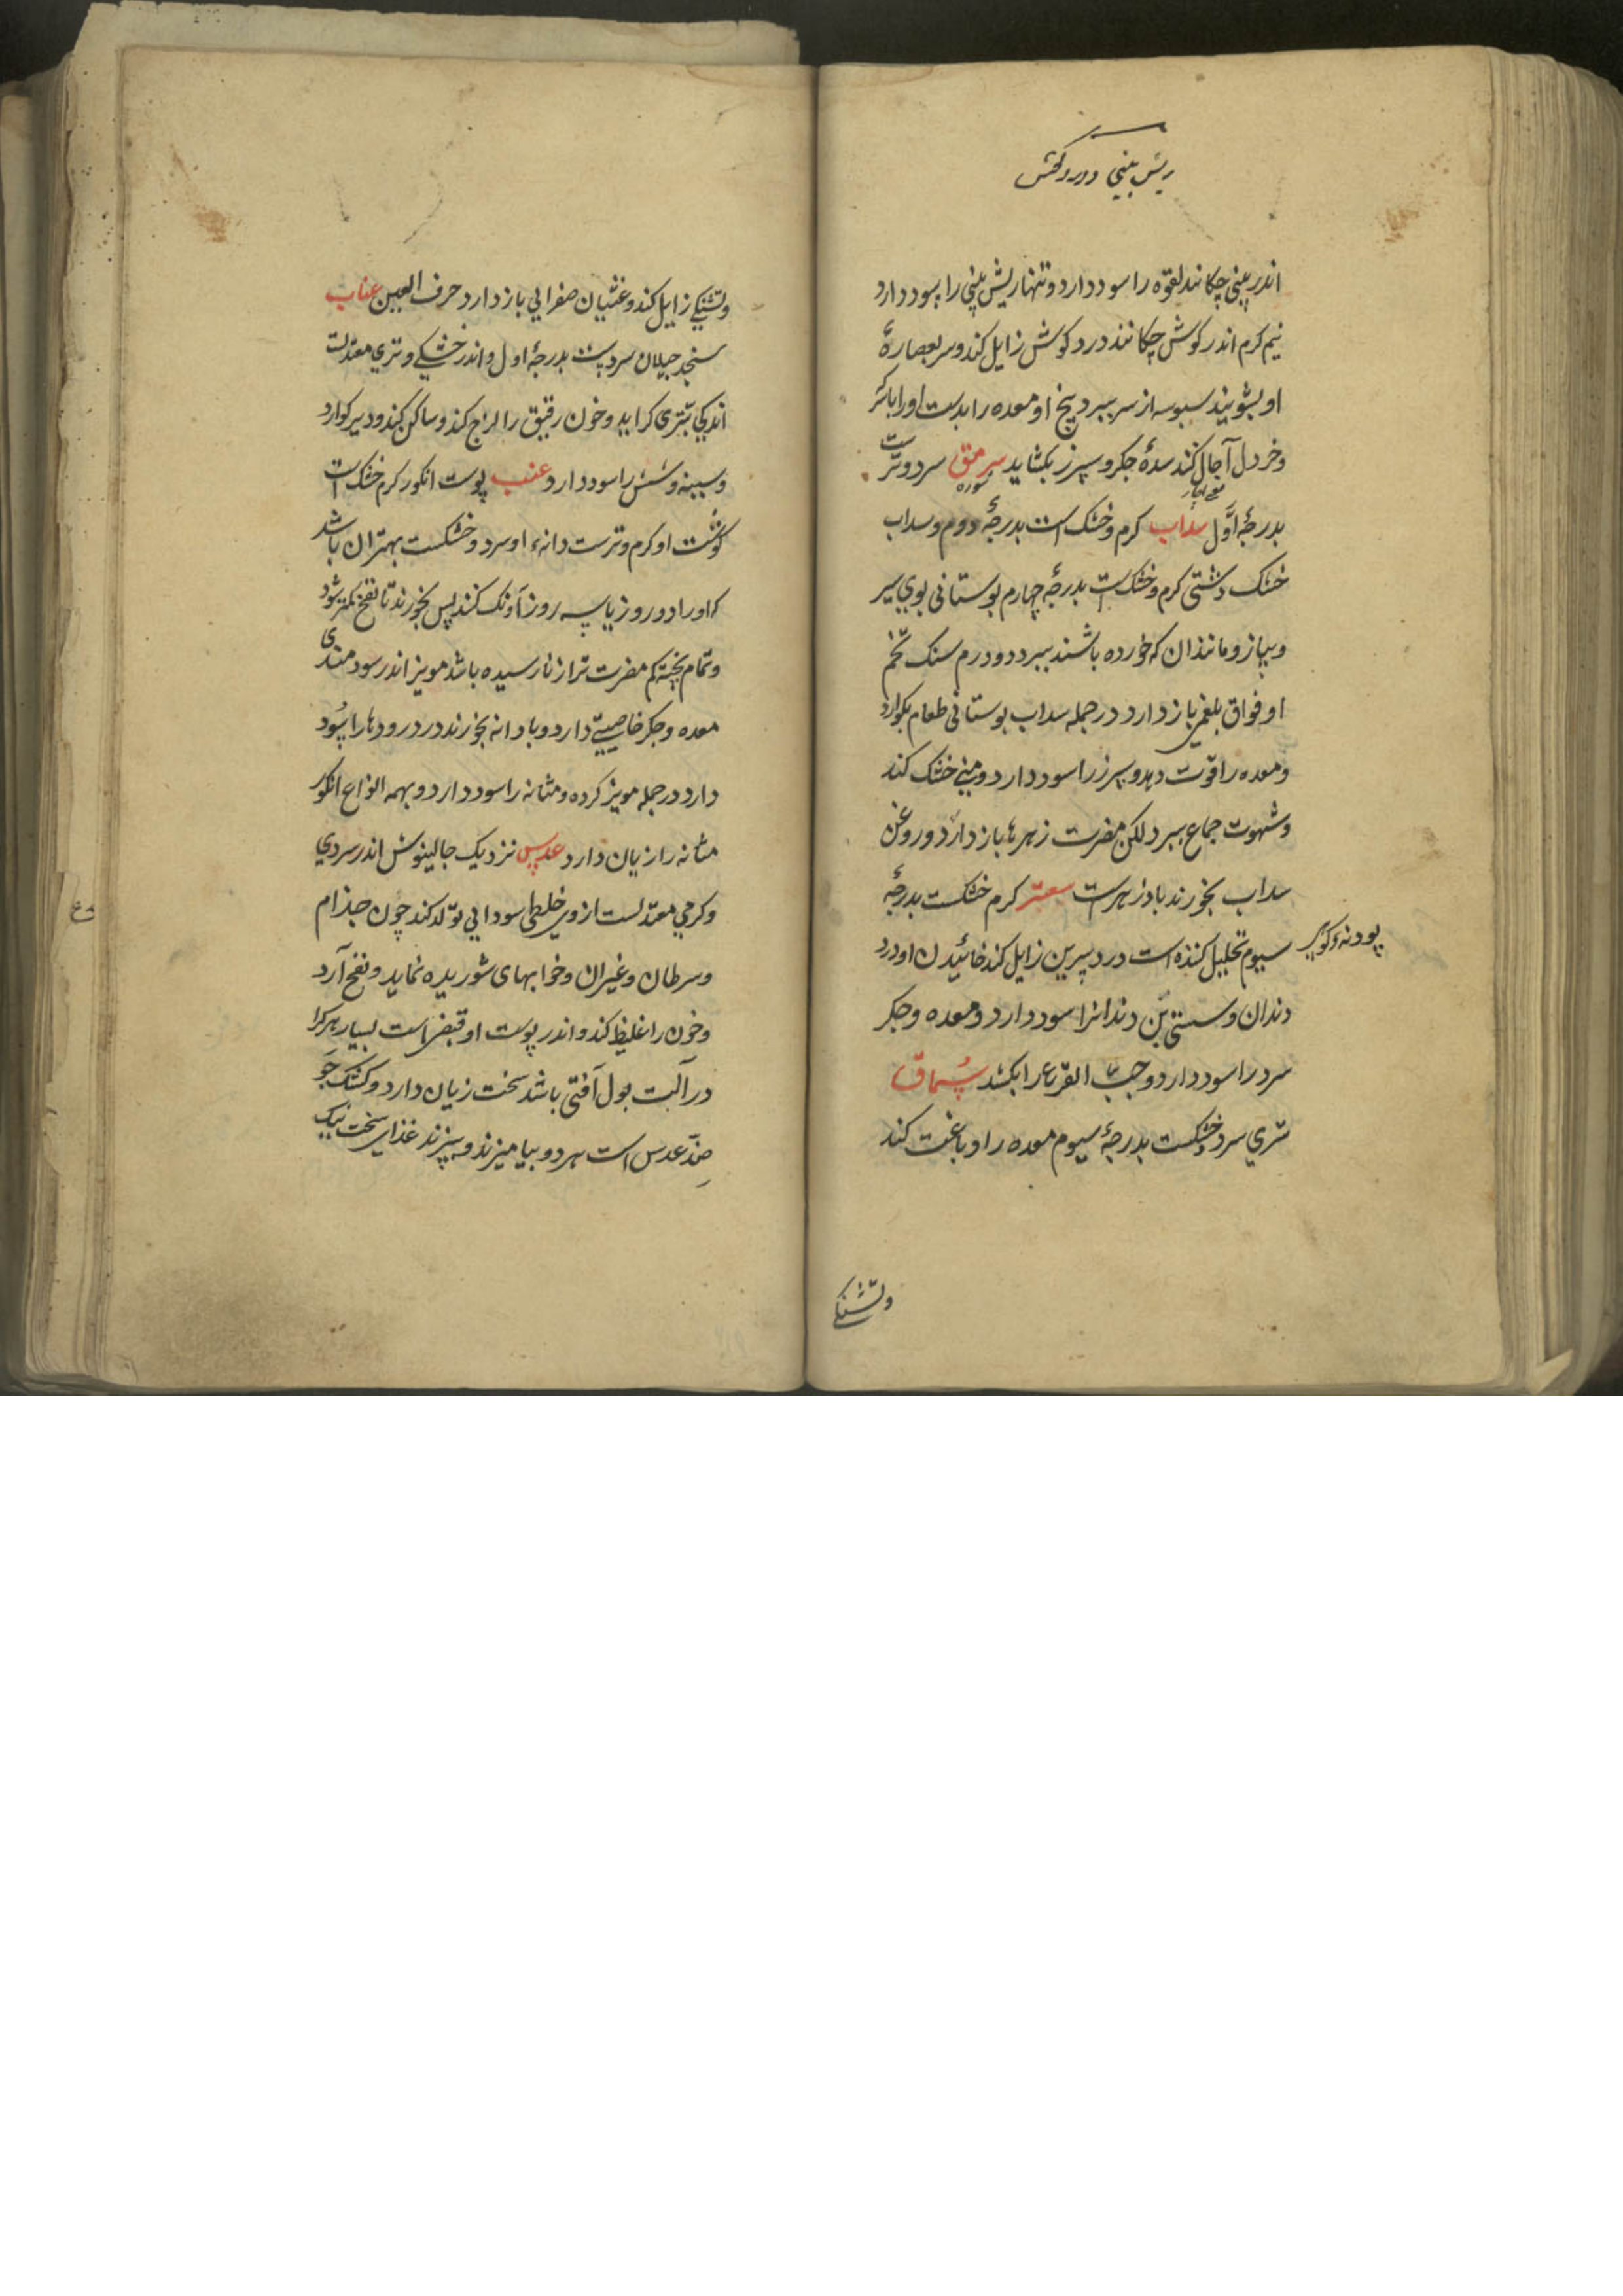 ریش بینی و درد گوش
اندر بینی چکانند لقوه را سود دارد و تنها ریش بینی را سود دارد
نیم کرم اندر کوش چکانند درد کوش زایل کند و سر بعصارهٔ
او بشویند سبوسه از سر ببرد بیخ او معده را بدست او را با
و خردل آجال کند سدهٔ جکر و سپرز بکشاید سرمق سرد و ترست
بدرجهٔ اوّل سداب کرم و خشک است بدرجهٔ دوم و سداب
خشک دشتی کرم و خشک است بدرجهٔ چهارم بوستانی بوی سیر
و پیاز و مانند ان که خورده باشند ببرد دو درم سنک تخم
او فواق بلغمی باز دارد در جمله سداب بوستانی طعام بکوارد
و معده را قوّت دهد و سپرز را سود دارد و منی خشک کند
و شهوت جماع ببرد لکن مضرت زهرها باز دارد و روغن
سداب بخورند بادزهرست سعتر کرم خشکست بدرجهٔ
پودنهٔ کوهی
سیوم تحلیل کننده است درد سرین زایل کند خائیدن او درد
دندان و سستی بن دندانرا سود دارد و معده و جکر
سرد را سود دارد و حبّ القرع را بکشد سماق
تتری سرد خشکست بدرجهٔ سیوم معده را دباغت کند
و تشنکی
و تشنکی زایل کند و غثیان صفرایی باز دارد حرف العین عناب
سنجد جیلان سردست بدرجهٔ اول و اندر خشکی و تری معتدلست
اندکی بتری کراید و خون رقیق را لزج کند و ساکن کند و دیر کوارد
و سینه و شش را سود دارد عنب پوست انکور کرم خشک است
کوشت او کرم و ترست دانهٔ او سرد و خشکست بهتر ان باشد
که او را دو روز یا سه روز آونک کنند پس بخورند تا نفخ کمتر شود
و تمام پخته کم مضرت تر از نارسیده باشد مویز اندر سودمندی
معده و جکر خاصیتی دارد و با دانه بخورند درد رودها را سود
دارد در جمله مویز کرده و مثانه را سود دارد و بهمه انواع انکور
مثانه را زیان دارد عدس نزدیک جالینوش اندر سردی
و کرمی معتدلست از وی خلطی سودایی تولّد کند چون جذام
و سرطان و غیر ان و خوابهای شوریده نماید و نفخ آرد
و خون را غلیظ کند و اندر پوست او قبض است بسیار هرکرا
در آلت بول آفتی باشد سخت زیان دارد و کشک جو
ضدّ عدس است هر دو بیامیزند و بپزند غذای سخت نیک